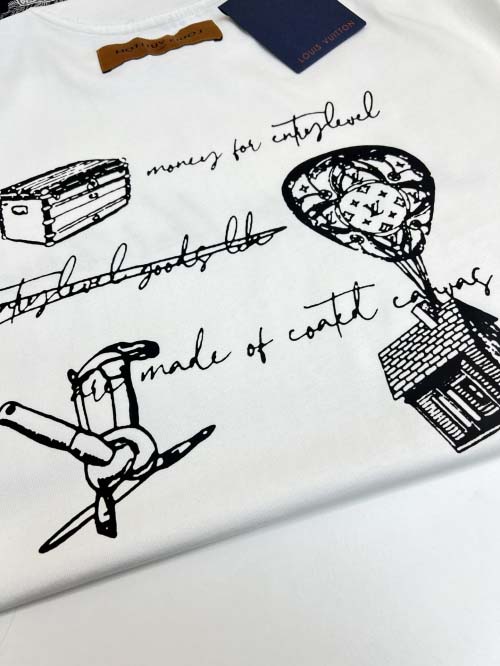 LOUIS VUITTON
LOUIS VUITTON
money for entrylevel
entrylevel goods like
made of coated canvas
LV